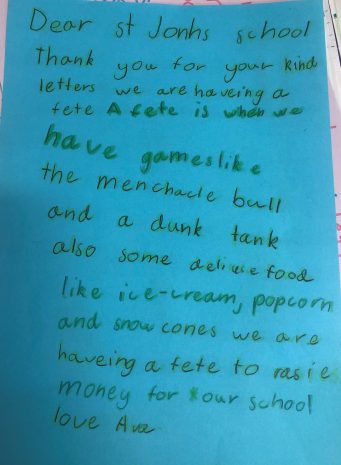 Dear st Jonhs school
Thank you for your kind
letters we are haveing a
fete A fete is when we
have games like
the menchacle bull
and a dunk tank
also some deliuse food
like ice-cream, popcorn
and snow cones we are
haveing a fete to rasie
money for our school
love Ava